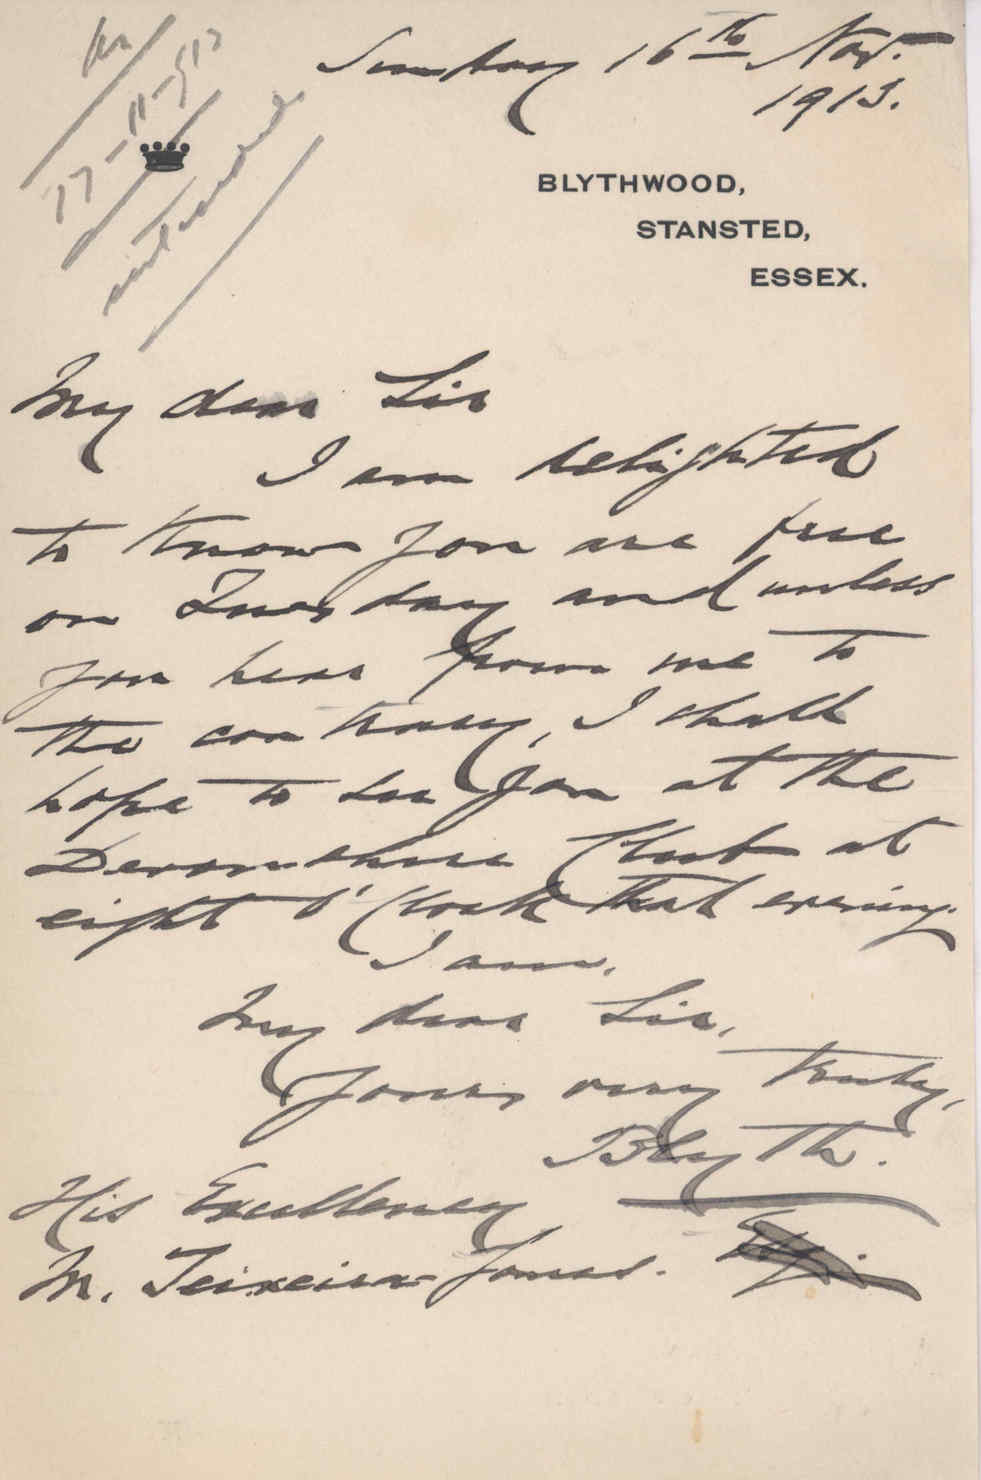 17-11-913
Sunday 16th Nov.
1913.
BLYTHWOOD,
STANSTED,
ESSEX.
My dear Sir
I am delighted
to know you are free
on Tuesday and unless
you hear from me to
the contrary, I shall
hope to see you at the
Devonshire Club at
eight O'Clock that evening.
I am,
My dear Sir,
Yours very truly,
Blyth.
His Excellency
M. Teixeira-Gomes.